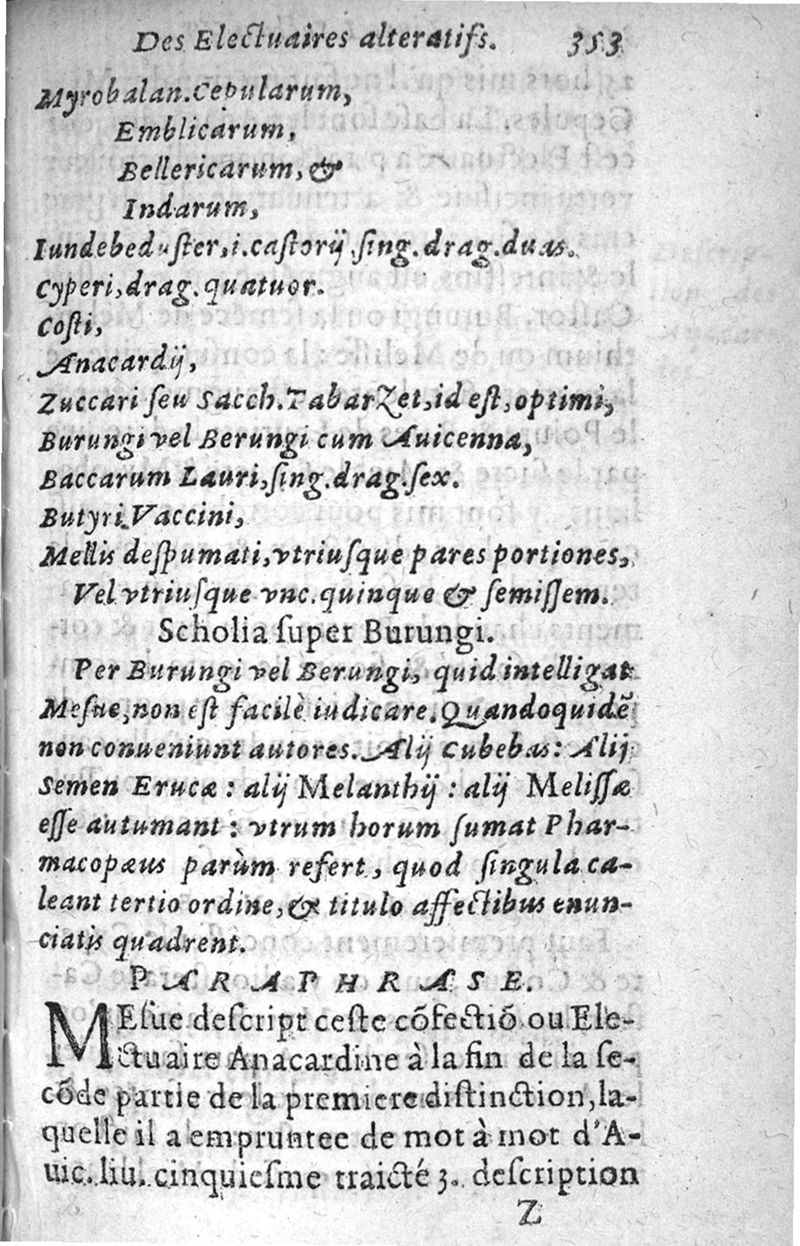 Des Electuaires alteratifs. 353
Myrobalan. Cepularum,
Emblicarum,
Bellericarum, &
Indarum,
Iundebeduster, i. castorij sing. drag. duas.
Cyperi, drag. quatuor.
Costi,
Anacardij,
Zuccari seu Sacch. TabarZet, id est, optimi,
Burungi vel Berungi cum Auicenna,
Baccarum Lauri, sing. drag. sex.
Butyri Vaccini,
Mellis despumati, vtriusque pares portiones,
Vel vtriusque vnc. quinque & semissem.
Scholia super Burungi.
Per Burungi vel Berungi, quid intelligat
Mesue, non est facilè iudicare. Quandoquidē
non conueniunt autores. Alij Cubebas: Alij
Semen Erucæ: alij Melanthij: alij Melissæ
esse autumant: vtrum horum sumat Phar-
macopæus parùm refert, quod singula ca-
leant tertio ordine, & titulo affectibus enun-
ciatis quadrent.
PARAPHRASE.
MEsue descript ceste cõfectiõ ou Ele-
ctuaire Anacardine à la fin de la se-
cõde partie de la premiere distinction, la-
quelle il a empruntee de mot à mot d'A-
uic. liu. cinquiesme traicté 3. description
Z